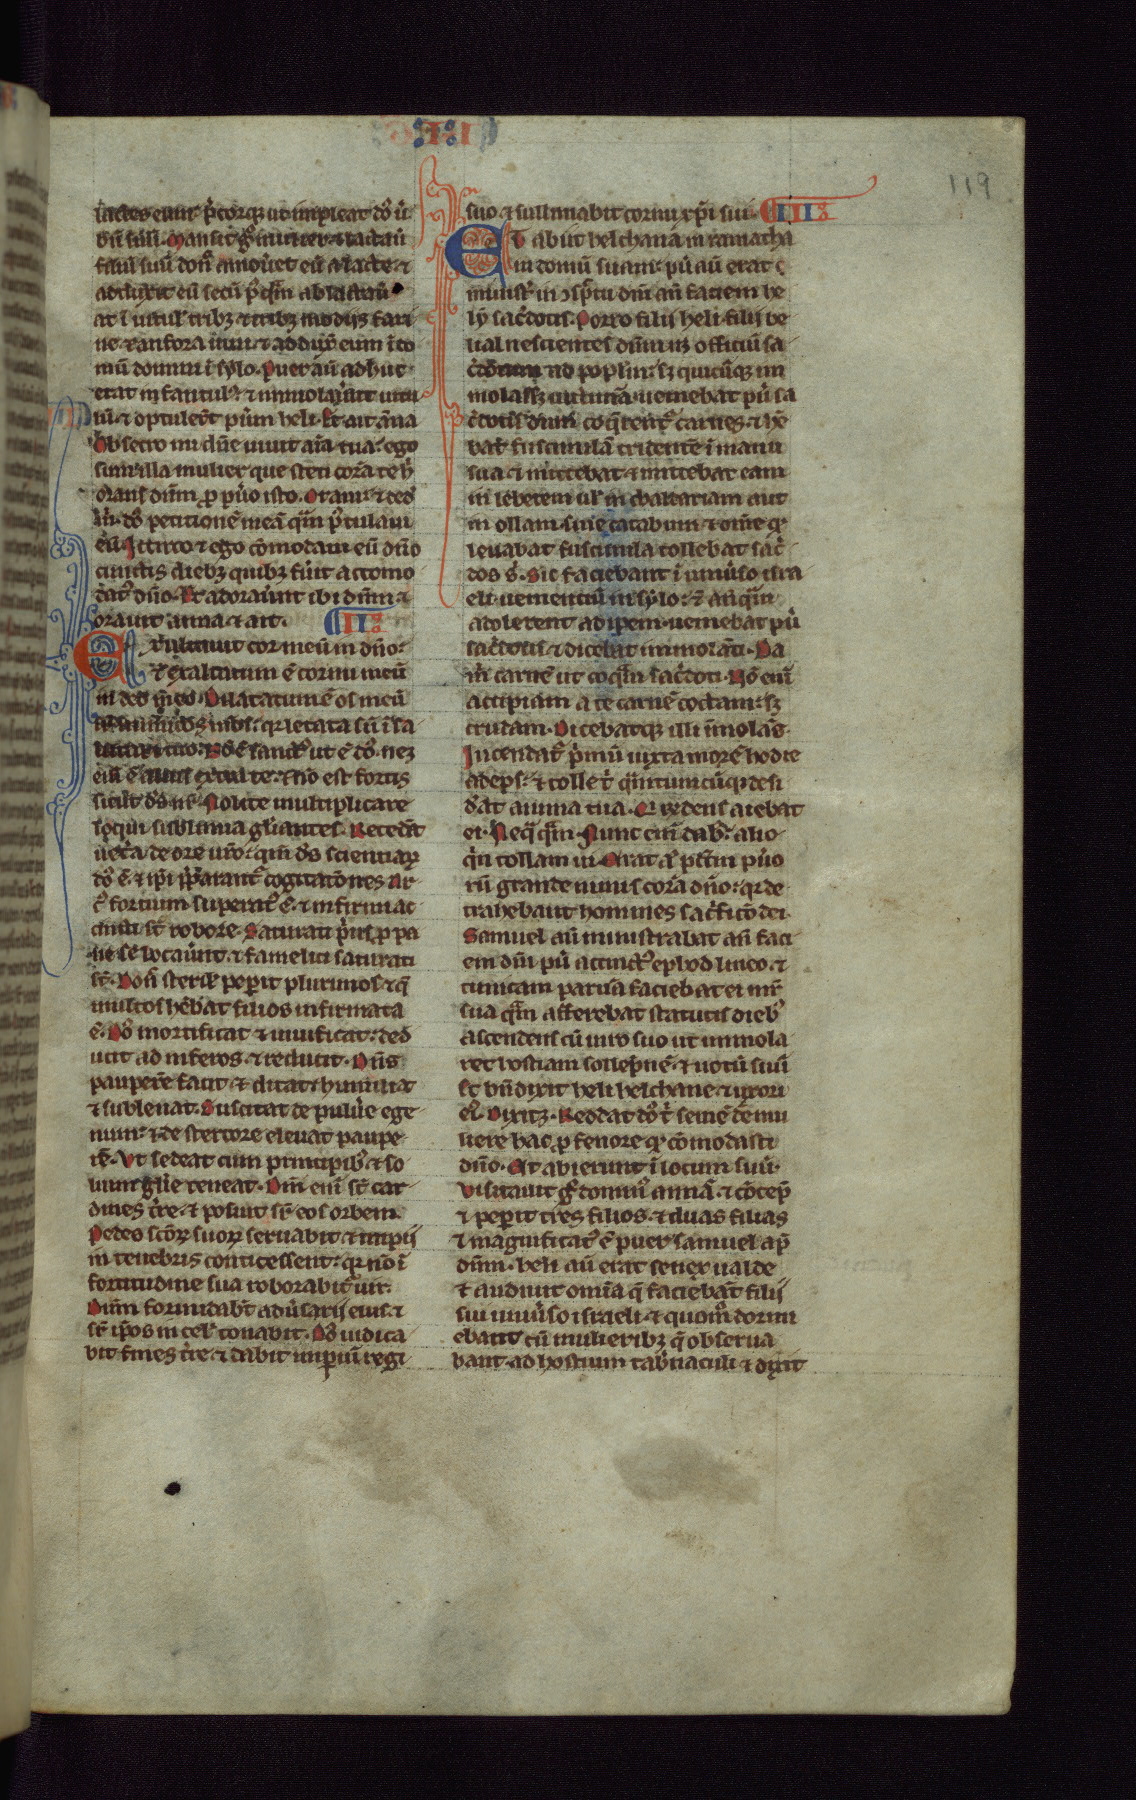 119
lactes eum p̄corq̨ ut impleat dn̄s ū
bū suū. Mansit g̊ mulier ⁊ lactaū
filiū suū donˀ amouet eū a lacte ⁊
adduxit eū secū pꝰq̃m ablactaū
at ī uitulˀ tribꝫ ⁊ tribꝫ modijs fari
ne ⁊ anfora uini ⁊ adduxˀ eum ī do
mū domini ī sylo. Puer aū adhuc
erat infantulˀ ⁊ immolauert uitu
lū ⁊ optulert pūm heli. Et ait āna
Obsecro mi dn̄e uiuit aīa tua ego
sum illa mulier que steti corā te h̄
orans dn̄m ꝓ pūo isto. Oraui ⁊ ded
m̄ dn̄s petitionē meā q̃m pꝰtulaui
eū Iccirco ⁊ ego cōmodaui eū dn̄o
cunctis diebꝫ quibꝫ fūit accomo
datꝰ dn̄o. Et adorauert ibi dn̄m ⁊
orauit anna ⁊ ait. II
Exultauit cor meū in dn̄o
⁊ exaltatum ē cornu meū
in deo m̄eo. Dilatatum ē os meū
sup inimicos meos q̄ letata sū ī sa
lutari tuo. Nō ē sanctꝰ ut ē dn̄s neꝫ
eni ē alius extra te ⁊ nō est fortis
sicut dˢ nˢ. Nolite multiplicare
loqui sublimia gl̄iantes. Recedāt
uetˀa de ore uro q̄m dˢ scientiaꝝ
dn̄s ē ⁊ ipī p̄parantˀ cogitatōnes Ar
cˀ fortium superatꝰ ē ⁊ infirmi ac
cincti st̄ robore. Saturati pˀus ꝓ pa
ne se locauert ⁊ famelici saturati
st̄. Donˀ sterilˀ pepit plurimos ⁊ q̄
multos hēbat filios infirmata
ē. Dn̄s mortificat ⁊ uiuificat ded
ucit ad inferos ⁊ reducit. Dn̄s
pauperē facit ⁊ ditat humiliat
⁊ subleuat. Suscitat de puluˀe ege
num ⁊ de stercore eleuat paupe
rē. Ut sedeat cum principibꝰ ⁊ so
lium gl̄ie teneat. Dn̄i eni st̄ car
dines tˀre ⁊ posuit sˀ eos orbem.
Pedes sc̄oꝝ suoꝝ seruabit ⁊ impii
in tenebris conticescent q̄ nō ī
fortitudine sua roborabitˀ uir.
Dn̄m formidabt̄ aduˀsarij eius ⁊
sˀ ipos in celˀ tonabit. Dn̄s iudica
bit fines tˀre ⁊ dabit imperiū regi
suo ⁊ sullimabit cornu xp̄i sui. III
Et abiit helchana in ramatha
in domū suam. pū aū erat
ministˀ in ꝯspctu dn̄i an̄ faciem he
ly sacˀdotis. Porro filii heli filii be
lial nescientes dn̄m nˀ officiū sa
cˀdotum ad popl̄m sꝫ quicūq̨ im
molassꝫ uictimā ueniebat pūˀ sa
cˀdotis dum coq̄rentˀ carnes ⁊ hē
bat fuscinulā tridentē ī manu
sua ⁊ mittebat ⁊ mittebat eam
in lebetem ulˀ in chaldariam aut
in ollam siue cacabum ⁊ om̄e q̄
leuabat fuscinula tollebat sacˀ
dos sˀ. Sic faciebant ī uniuˀso isra
eli uenientiū in sylo. ⁊ anteq̄m
adolerent adipem ueniebat pūˀ
sacˀdotis ⁊ dicebat immolāti. Da
m̄ carnē ut coq̄m sacˀdoti. Nō eni
accipiam a te carnē coctam sꝫ
crudam. Dicebatq̨ illi īmolās
Incendatˀ pˀmū iuxta morē hodie
adeps ⁊ tolle tˀ q̄ntumcūq̨ desi
dˀat anima tua. Qui respondens aiebat
ei. Neq̄q̄m. Nunc eni dabˀ alio
q̄n tollam ui. Erat gˀ pctm̄ pūo
rū grande nimis corā dn̄o q̄ de
trahebant homines sacˀficio dei.
Samuel aū ministrabat an̄ faci
em dn̄i pūˀ accinctꝰ ephod lineo. ⁊
tunicam paruā faciebat ei mr̄
sua q̄m afferebat statutis diebꝰ
ascendens cū uiro suo ut immola
ret hostiam sollepnē. ⁊ uotū suū
Et bn̄dixit heli helchane ⁊ uxori
eiˀ. Dixitꝫ. Reddat dn̄s tˀ semē de mu
liere hac ꝓ fenore q̄ cōmodasti
dn̄o. Et abierunt ī locum suū.
Visitauit gˀ dominˀ annā ⁊ cōcep̄
⁊ peperit tres filios ⁊ duas filias
⁊ magnificatꝰ ē puer samuel ap̄
dn̄m. heli aū erat senex ualde
⁊ audiuit omīa q̄ faciebāt filij
sui uniuˀso israeli ⁊ quom̊ dormi
ebant cū mulieribꝫ q̄ obserua
bant ad hostium tabˀnaculi ⁊ dixit